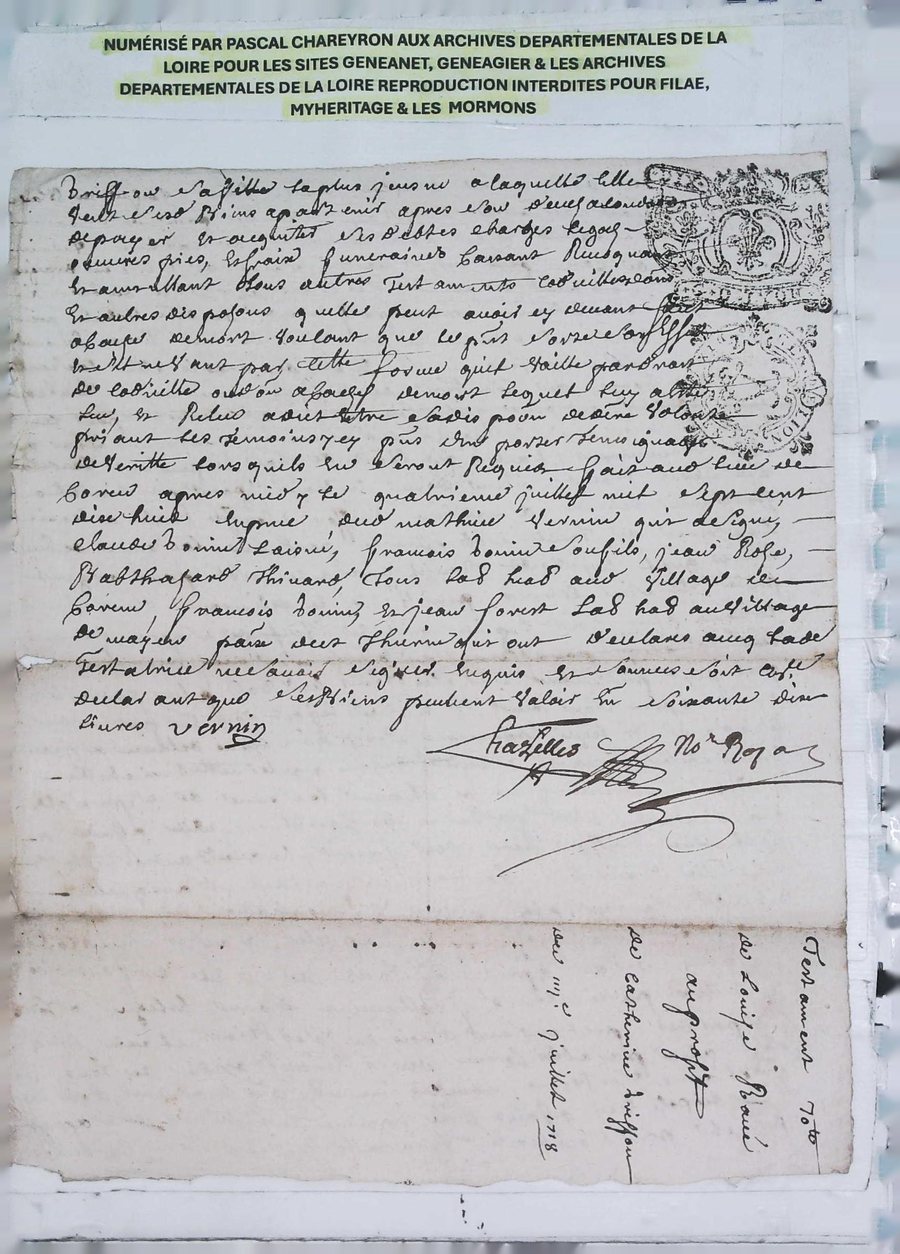 NUMÉRISÉ PAR PASCAL CHAREYRON AUX ARCHIVES DEPARTEMENTALES DE LA
LOIRE POUR LES SITES GENEANET, GENEAGIER & LES ARCHIVES
DEPARTEMENTALES DE LA LOIRE REPRODUCTION INTERDITES POUR FILAE,
MYHERITAGE & LES MORMONS
briffon sa fille la plus jeusne a laquelle elle
veut sesd biens apartenir apres son deces
de payer et acquitter ses debtes charges legas
oeuvres pies, et fraix funeraires Cassant Revoquant
et annullant tous autres testaments codicilles
et autres disposons quelle peut avoir cy devant fait
a cause de mort voulant que le pnt sorte son effet
et sil ne vaut par cette forme quil vaille par droit
de codicille ou don a cause de mort lequel luy a esté
leu, et Releu a dit estre sadis poon derniere volonte
priant les temoins icy pns den porter temoignage
de veritte lors quils en seront Requis fait aud lieu de
Coreu apres midy le quatrieme juillet mil sept cent
dixe huit en pnce de mathieu vernin qui a signe,
claude bonin Laisné, francois bonin son fils, jean Rose,
Balthasard Thinard, Tous lab hab aud village de
Coreu, francois bonin, et jean forest Lab hab au village
de mayeu paisse dud Thurin qui ont declares avec lade
Testatrice ne savoir signer enquis et sommes soit
declarant que ses biens peuvent valoir en soixante dix
livres vernin
Chazelles No.re Royal
Testament
de Louise Raué
au profit
de Catherine briffon
du iiij.e juillet 1718